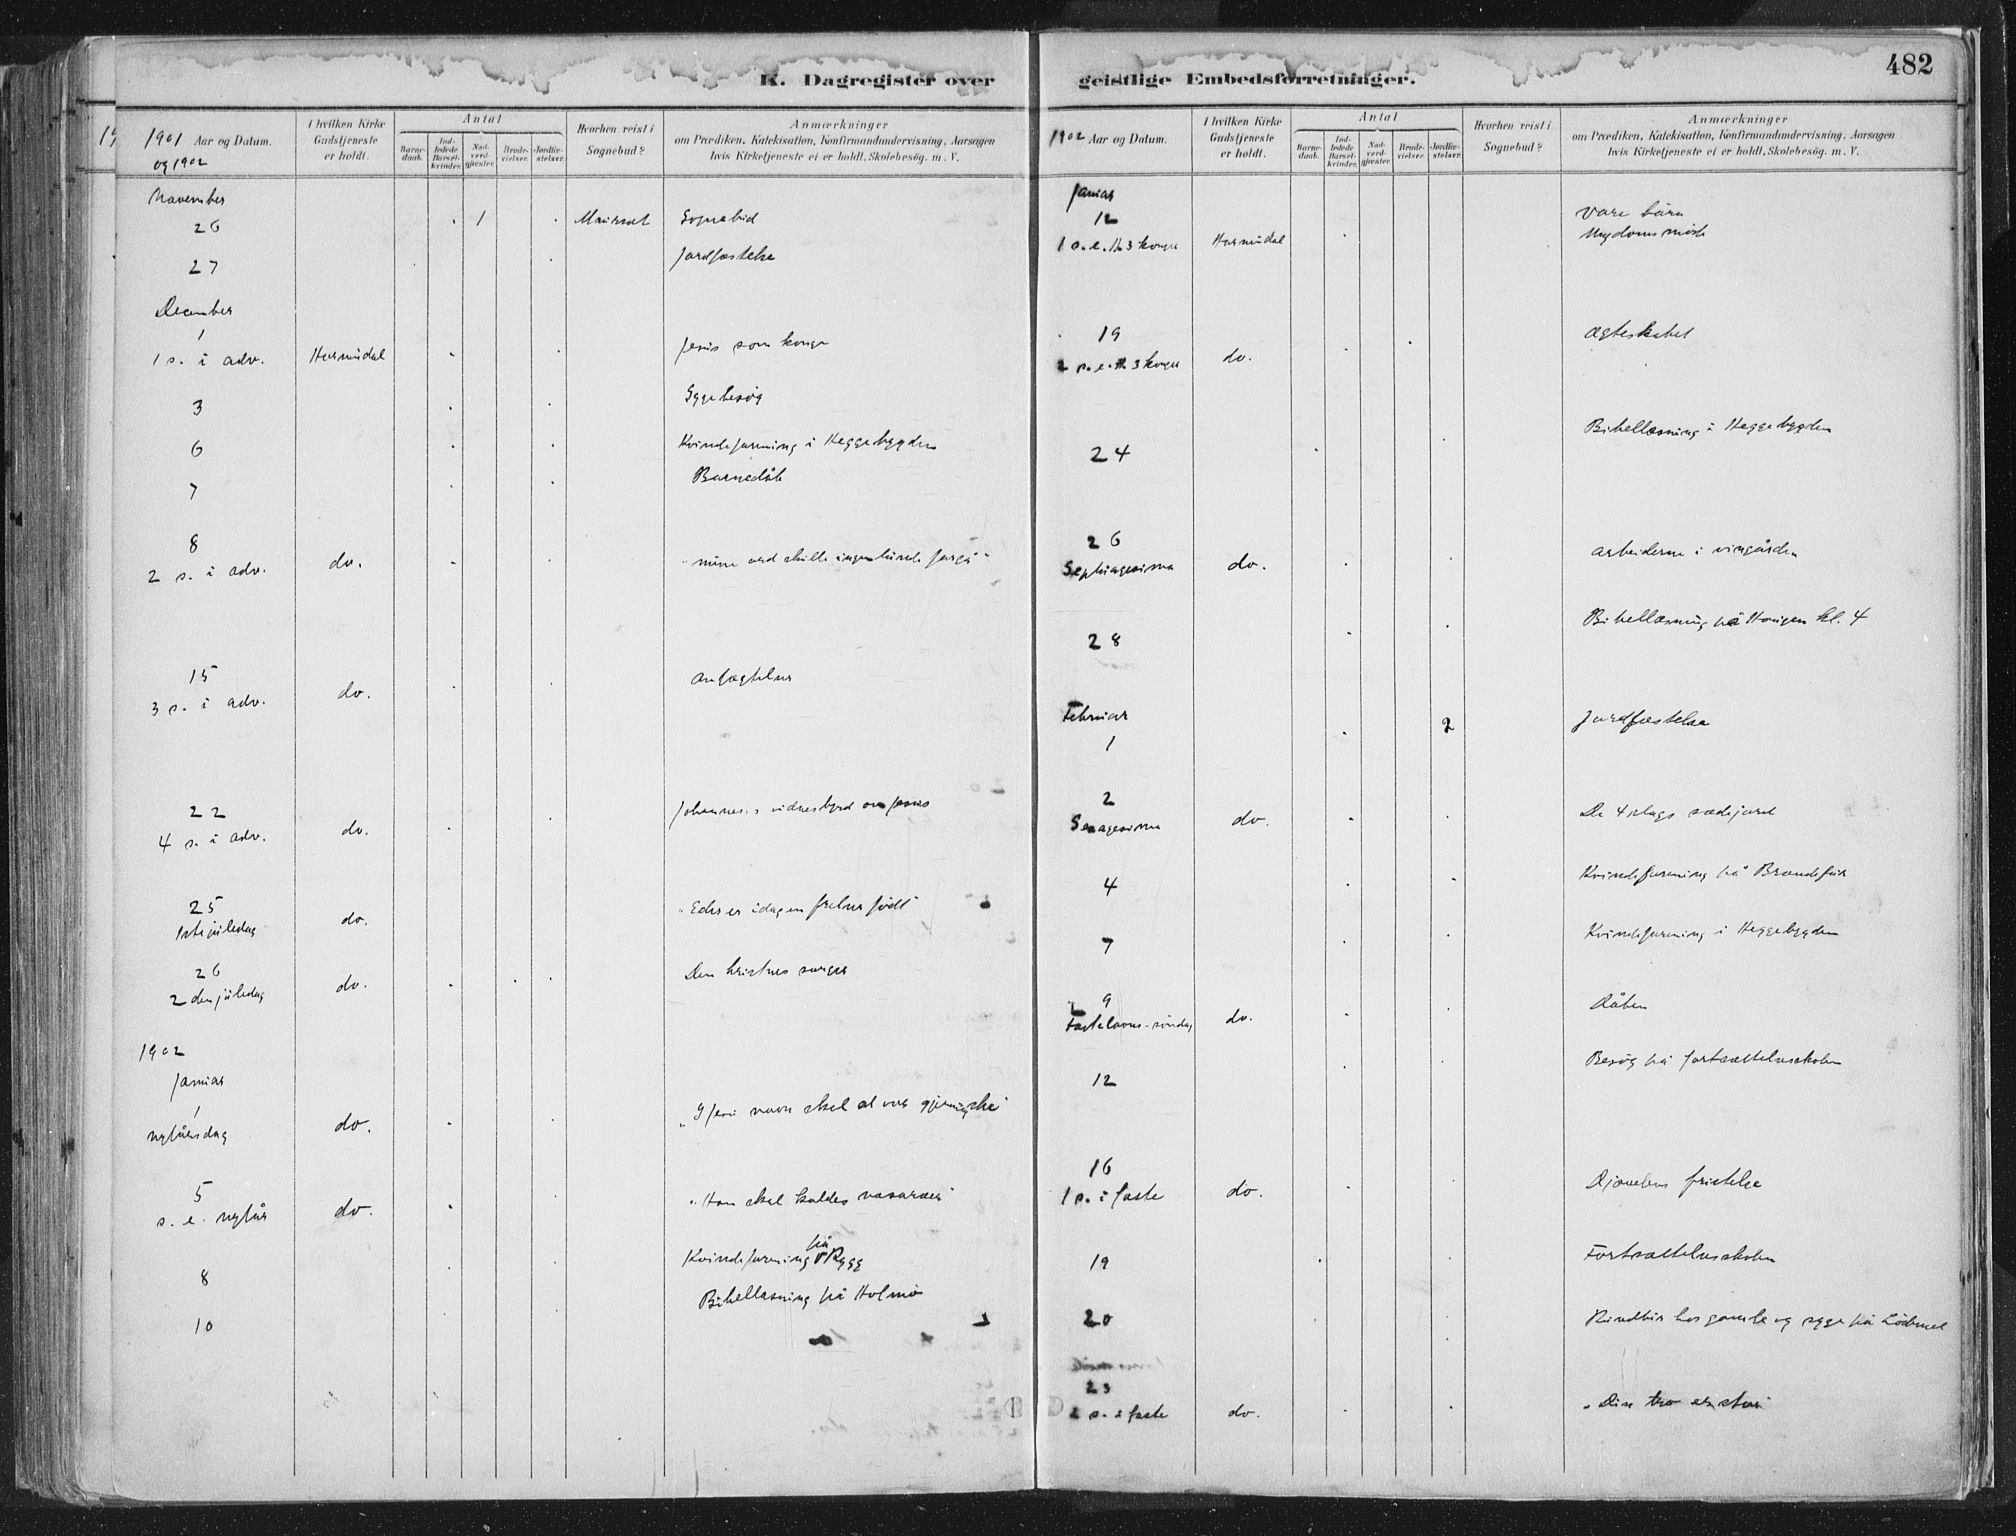 482
K. Dagregister over geistlige Embedsforretninger.
1901 og 1902 Aar og Datum.
I hvilken Kirke Gudstjeneste er holdt.
Antal
Barne-daab.
Ind-ledede Barsel-kvinder.
Nad-verd-gjester.
Brude-vielser.
Jordfæ-stelser.
Hvorhen reist i Sognebud?
Anmærkninger
om Prædiken, Katekisation, Konfirmandundervisning, Aarsagen
hvis Kirketjeneste ei er holdt, Skolebesög. m. V.
November
26 1 Sognebud
27 Jordfæstelse
December
1
1 s. i adv. Hornindal Jesus som konge
3 Sygebesøg
6 Kvindeforening i Heggebygden
7 Barnedåb
8
2 s. i adv. do. "mine ord skulle ingenlunde forgå"
15
3 s. i adv. do. Anfægtelser
22
4 s. i adv. do. Johannes's vidnesbyrd om Jesus
25
1ste juledag do. "Eder er idag en frelser født"
26
2den juledag do. Den kristnes sorger
1902
Januar
1
nytårsdag do. "I Jesu navn skal al vor gjerning ske"
5
s. e. nytår do. "Han skal kaldes nasaræer"
8 Kvindeforening på Rygg
10 Bibellæsning på Holmø
1902 Aar og Datum.
I hvilken Kirke Gudstjeneste er holdt.
Antal
Barne-daab.
Ind-ledede Barsel-kvinder.
Nad-verd-gjester.
Brude-vielser.
Jordfæ-stelser.
Hvorhen reist i Sognebud?
Anmærkninger
om Prædiken, Katekisation, Konfirmandundervisning, Aarsagen
hvis Kirketjeneste ei er holdt, Skolebesög. m. V.
Januar
12 Vore børn
1 s. e. H. 3 konger Hornindal Ungdomsmøde
19 Ægteskabet
2 s. e. H. 3 konger do.
24 Bibellæsning i Heggebygden
26
Septuagesima do. Arbeiderne i vingården
28 Bibellæsning på Haugen kl. 4
Februar
1 2 Jordfæstelse
2
Sexagesima do. De 4 slags sædejord
4 Kvindeforening på
7 Kvindeforening i Heggebygden
9
Fastelavns-søndag do. Dåben
12 Besøg på fortsættelsesskolen
16
1 s. i faste do. Djævelens fristelse
19 Fortsættelsesskolen
20 hos gamle og syge på
23
2 s. i faste do. "Din tro er stor"